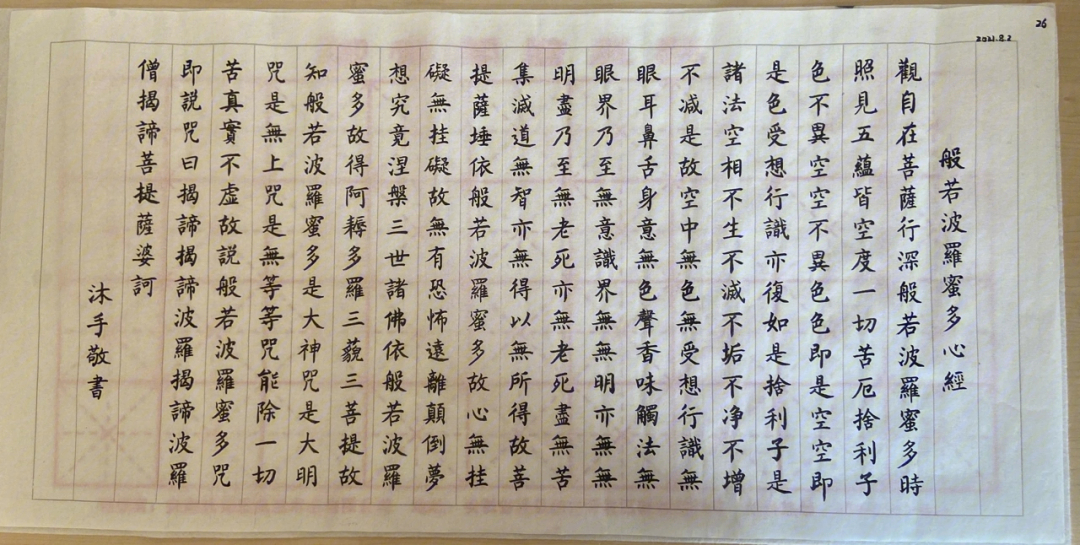 26
2021.8.2
般若波羅蜜多心經
觀自在菩薩行深般若波羅蜜多時
照見五蘊皆空度一切苦厄捨利子
色不異空空不異色色即是空空即
是色受想行識亦復如是捨利子是
諸法空相不生不滅不垢不净不增
不减是故空中無色無受想行識無
眼耳鼻舌身意無色聲香味觸法無
眼界乃至無意識界無無明亦無無
明盡乃至無老死亦無老死盡無苦
集滅道無智亦無得以無所得故菩
提薩埵依般若波羅蜜多故心無挂
礙無挂礙故無有恐怖遠離顛倒夢
想究竟涅槃三世諸佛依般若波羅
蜜多故得阿耨多羅三藐三菩提故
知般若波羅蜜多是大神咒是大明
咒是無上咒是無等等咒能除一切
苦真實不虛故説般若波羅蜜多咒
即説咒曰揭諦揭諦波羅揭諦波羅
僧揭諦菩提薩婆訶
沐手敬書